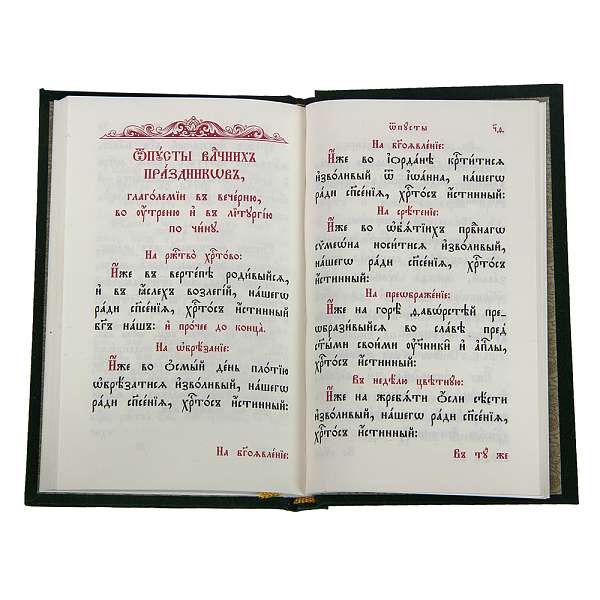 Ѿпꙋ́сты влⷣчнихъ
пра́здникѡвъ,
глаго́лемїи въ вече́рню,
во ᲂу҆́треню и҆ въ лїтꙋргі́ю
по чи́нꙋ.
На ржⷭ҇тво̀ хрⷭ҇то́во:
И҆́же въ верте́пѣ роди́выйсѧ,
и҆ въ ꙗ҆́слехъ возле́гїй, на́шегѡ
ра́ди сп҃се́нїѧ, хрⷭ҇то́съ и҆́стинный
бг҃ъ на́шъ: и҆ про́чее до конца̀.
На ѡ҆брѣ́занїе:
И҆́же во ѻ҆смы́й де́нь пло́тїю
ѡ҆брѣ́затисѧ и҆зво́ливый, на́шегѡ
ра́ди сп҃се́нїѧ, хрⷭ҇то́съ и҆́стинный:
На бг҃оѧвле́нїе:
Ѿпꙋсты
На бг҃оѧвле́нїе:
И҆́же во і҆ѻрда́нѣ крⷭ҇ти́тисѧ
и҆зво́ливый ѿ і҆ѡа́нна, на́шегѡ
ра́ди сп҃се́нїѧ, хрⷭ҇то́съ и҆́стинный:
На срѣ́тенїе:
И҆́же во ѡ҆б̾ѧ́тїихъ првⷣнагѡ
сѷмеѡ́на носи́тисѧ и҆зво́ливый,
на́шегѡ ра́ди сп҃се́нїѧ, хрⷭ҇то́съ
и҆́стинный:
На преѡбраже́нїе:
И҆́же на горѣ̀ ѳаѡ́рстѣй пре-
ѡбрази́выйсѧ во сла́вѣ пред̾
ст҃ы́ми свои́ми ᲂу҆чн҃ки̑ и҆ а҆пⷭ҇лы,
хрⷭ҇то́съ и҆́стинный:
Въ недѣ́лю цвѣ́тнꙋю:
И҆́же на жребѧ́ти ѻ҆́сли сѣ́сти
и҆зво́ливый, на́шегѡ ра́ди сп҃се́нїѧ,
хрⷭ҇то́съ и҆́стинный:
Въ тꙋ́ же